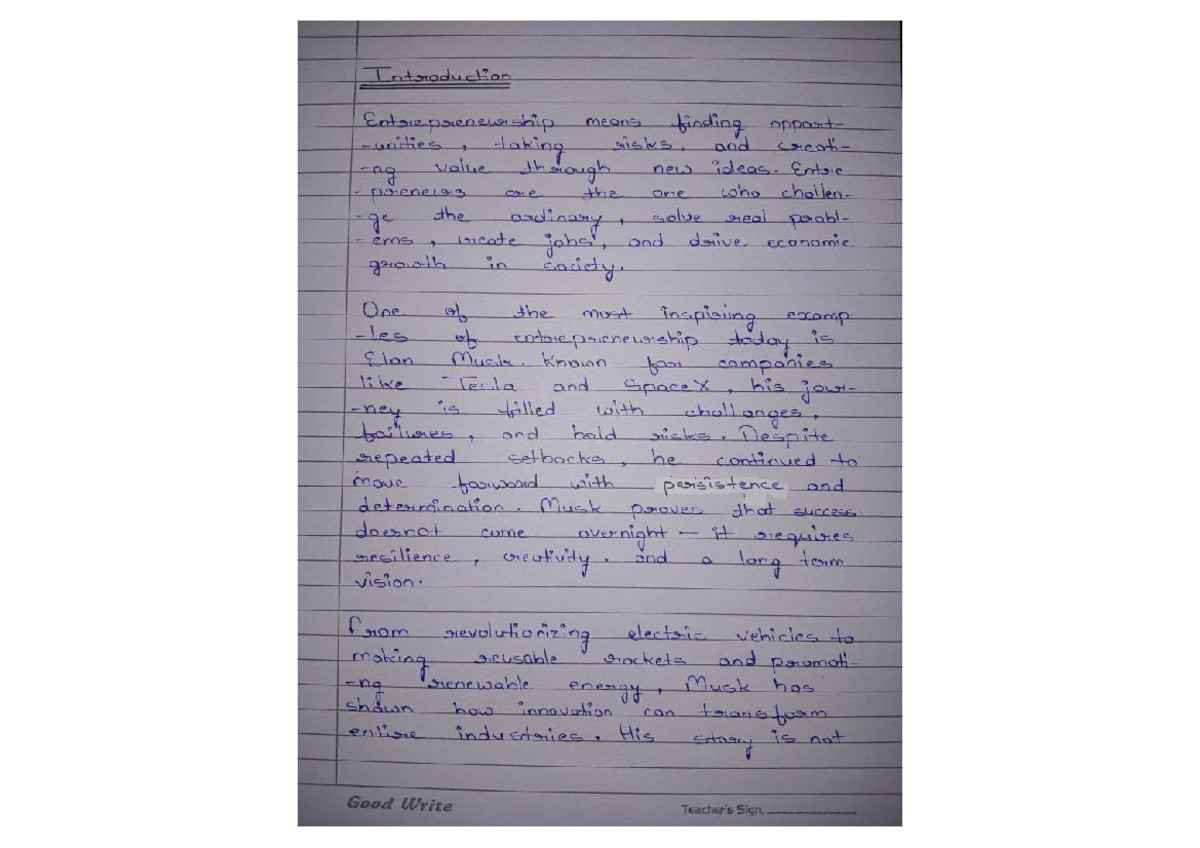 Introduction
Entrepreneurship means finding opport-
-unities, taking risks, and creati-
-ng value through new ideas. Entre
- preneurs are the one who challen-
-ge the ordinary, solve real probl-
-ems, create jobs, and drive economic
growth in society.
One of the most inspiring examp
-les of entrepreneurship today is
Elon Musk. Known for companies
like Tesla and SpaceX, his jour-
-ney is filled with challanges,
failures, and bold risks. Despite
repeated setbacks, he continued to
move forward with persistence and
determination. Musk proves that success
doesnot come overnight — it requires
resilience, creativity, and a long term
vision.
From revolutionizing electric vehicles to
making reusable rockets and promoti-
-ng renewable energy, Musk has
shown how innovation can transform
entire industries. His story is not
Good Write
Teacher's Sign.